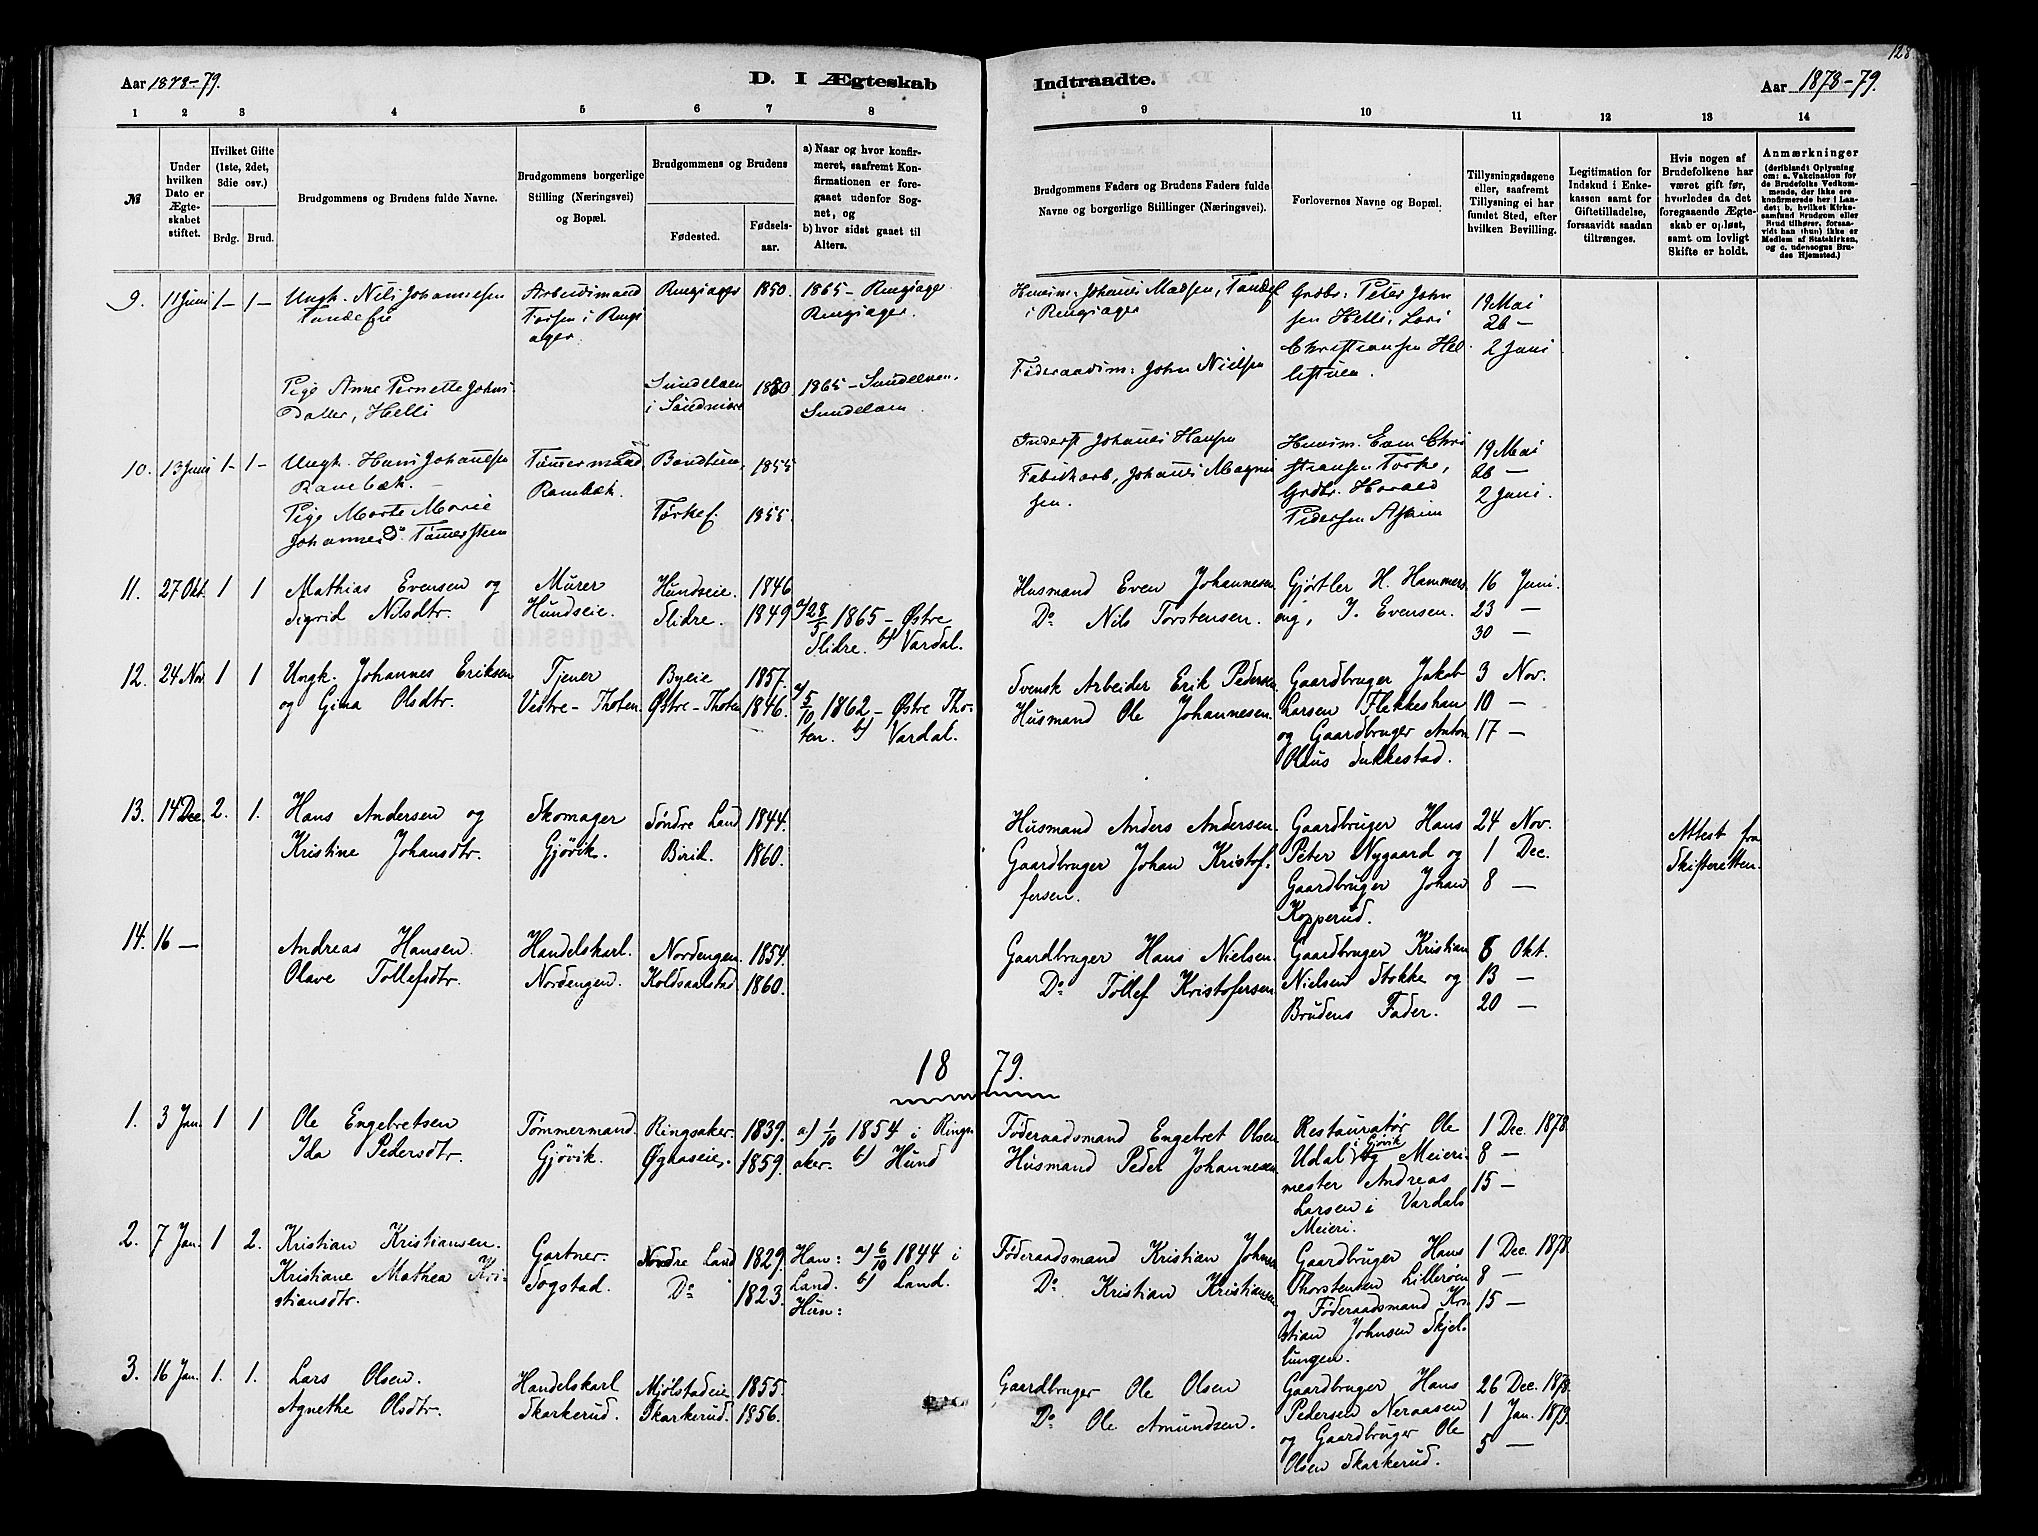 128
Aar 1878-79.
D. I Ægteskab
Indtraadte.
Aar 1878-79.
1 2 3 4 5 6 7 8
9 10 11 12 13 14
№
Under hvilken Dato er Ægteskabet stiftet.
Hvilket Gifte (1ste, 2det, 3die osv.)
Brdg. Brud.
Brudgommens og Brudens fulde Navne.
Brudgommens borgerlige Stilling (Næringsvei) og Bopæl.
Brudgommens og Brudens
Fødested.
Fødselsaar.
a) Naar og hvor konfirmeret, saafremt Konfirmationen er foregaaet udenfor Sognet, og
b) hvor sidst gaaet til Alters.
Brudgommens Faders og Brudens Faders fulde Navne og borgerlige Stillinger (Næringsvei).
Forlovernes Navne og Bopæl.
Tillysningsdagene eller, saafremt Tillysning ei har fundet Sted, efter hvilken Bevilling.
Legitimation for Indskud i Enkekassen samt for Giftetilladelse, forsaavidt saadan tiltrænges.
Hvis nogen af Brudefolkene har været gift før, hvorledes da det foregaaende Ægteskab er opløst, samt om lovligt Skifte er holdt.
Anmærkninger (deriblandt Oplysning om: a. Vakcination for de Brudefolks Vedkommende, der ikke ere konfirmerede her i Landet; b. hvilket Kirkesamfund Brudgom eller Brud tilhører, forsaavidt han (hun) ikke er Medlem af Statskirken, og c. udensogns Brudes Hjemsted.)
9. 11 Juni 1- 1- Ungk. Nils Johannesen Arbeidsmand Ringsager 1850. 1865 - Ringsager
i Ringsager Ringsager.
Husm: Johannes Madsen,
i Ringsager
Grdbr: Peter John
sen Helli, Lars
Christiansen Hel
listuen.
19 Mai
26 -
2 Juni
Pige Anne Pernette Johns
Datter, Helli
Sundelven
i Søndmøre
1850 1865 - Sundelven.
Sundelven
Føderaadsm: John Nielsen
10. 13 Juni 1- 1- Ungk. Hans Johansen Tømermand 1855
Rambæk. Rambæk.
Pige Marte Marie 1855.
Johannesd.
Inderst Johannes Hansen
Fabrikarb. Johannes Magnus
sen.
Husm. Even Chri
stiansen
Grdbr. Harald
Pedersen
19 Mai
26 -
2 Juni.
11. 27 Okt. 1 1 Mathias Evensen og Murer Hundseie. 1846
Sigrid Nilsdtr. Hundseie. Slidre. 1849 a) 28/5 1865 - Østre
Slidre. b) Vardal.
Husmand Even Johannesen Gjørtler H. Hammers 16 Juni.
Do Nils Torstensen. eng, J. Evensen. 23 -
30 -
12. 24 Nov. 1 1 Ungk. Johannes Eriksen Tjener Byeie 1857.
og Gina Olsdtr. Vestre-Thoten. Østre-Thoten 1846. a) 5/10 1862 - Østre Tho-
ten. b) Vardal.
Svensk Arbeider Erik Pedersen. Gaardbruger Jakob 3 Nov.
Husmand Ole Johannesen. Larsen Flekkeshau 10 -
og Gaardbruger Anton 17 -
Olaus Sukkestad.
13. 14 Dec. 2. 1. Hans Andersen og Skomager Søndre Land 1844.
Kristine Johansdtr. Gjøvik. Birid. 1860.
Husmand Anders Andersen. Gaardbruger Hans 24 Nov.
Gaardbruger Johan Kristof- Peter Nygaard og 1 Dec.
fersen. Gaardbruger Johan 8 -
Kopperud.
Attest fra
Skifteretten.
14. 16 - Andreas Hansen. Handelskarl. Nordengen. 1854.
Olave Tollefsdtr. Nordengen. Koldsaalstad. 1860.
Gaardbruger Hans Nielsen. Gaardbruger Kristian 6 Okt.
Do Tollef Kristofersen Nielsen Stokke og 13 -
Brudens Fader. 20 -
1879.
1. 3 Jan. 1 1 Ole Engebretsen Tømmermand. Ringsaker. 1839. a) 1/10 1854 i Rings-
Ida Pedersdtr. Gjøvik. Øghaseie. 1859. aker. b) Hund
Føderaadsmand Engebret Olsen Restauratør Ole 1 Dec. 1878
Husmand Peder Johannesen Udal i Gjøvik og Meieri- 8 -
mester Andreas 15 -
Larsen i Vardals
Meieri.
2. 7 Jan. 1 2. Kristian Kristiansen. Gartner. Nordre Land 1829. Han: a) 6/10 1844 i
Kristiane Mathea Kri- Sogstad. Do 1823. Land. b) Land.
stiansdtr. Hun:
Føderaadsmand Kristian Johnsen Gaardbruger Hans 1 Dec. 1878
Do Kristian Kristiansen Thorstensen Lillerøen 8 -
og Føderaadsmand Kri- 15 -
stian Johnsen Skjel-
lungen.
3. 16 Jan. 1. 1. Lars Olsen. Handelskarl Mjølstadeie 1855.
Agnethe Olsdtr. Skarkerud. Skarkerud. 1856.
Gaardbruger Ole Olsen Gaardbruger Hans 26 Dec. 1878.
Do Ole Amundsen. Pedersen Neraasen 1 Jan. 1879.
og Gaardbruger Ole 5 -
Olsen Skarkerud.